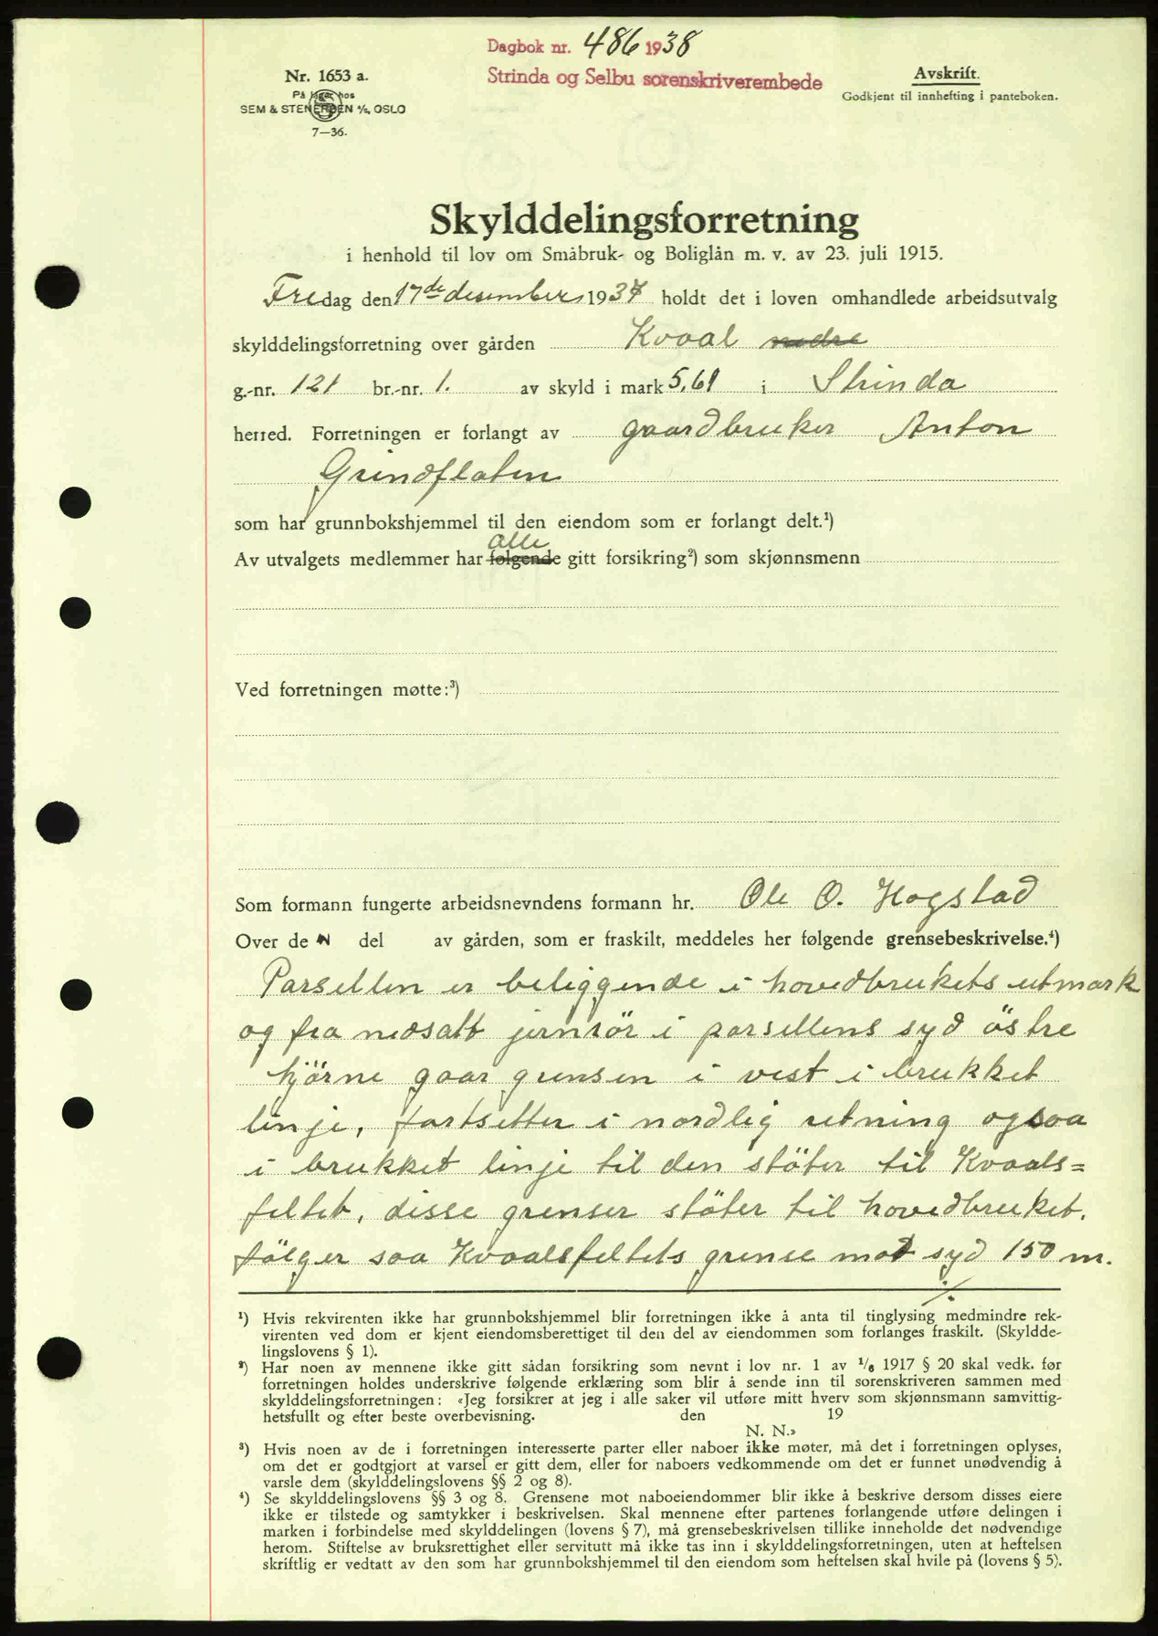 Dagbok nr. 486 1938
Strinda og Selbu sorenskriverembede
Nr. 1653 a.
På lager hos
SEM & STENERSEN A/S, OSLO
7—36.
Avskrift.
Godkjent til innhefting i panteboken.
Skylddelingsforretning
i henhold til lov om Småbruk- og Boliglån m. v. av 23. juli 1915.
Fredag den 17de desember 1937 holdt det i loven omhandlede arbeidsutvalg
skylddelingsforretning over gården Kvaal nedre
g.-nr. 121 br.-nr. 1. av skyld i mark 5,61 i Strinda
herred. Forretningen er forlangt av gaardbruker Anton
Grindflaten
som har grunnbokshjemmel til den eiendom som er forlangt delt.¹)
alle
Av utvalgets medlemmer har følgende gitt forsikring²) som skjønnsmenn
Ved forretningen møtte:³)
Som formann fungerte arbeidsnevndens formann hr. Ole O. Hogstad
Over de N del av gården, som er fraskilt, meddeles her følgende grensebeskrivelse.⁴)
Parsellen er beliggende i hovedbrukets utmark
og fra nedsatt jernrör i parsellens syd östre
hjörne gaar grensen i vest i brukket
linje, fortsetter i nordlig retning ogsaa
i brukket linje til den stöter til Kvaals=
feltet, disse grenser stöter til hovedbruket.
fölger saa Kvaalsfeltets grense mot syd 150 m.
./.
¹) Hvis rekvirenten ikke har grunnbokshjemmel blir forretningen ikke å anta til tinglysing medmindre rek-
virenten ved dom er kjent eiendomsberettiget til den del av eiendommen som forlanges fraskilt. (Skyldde-
lingslovens § 1).
²) Har noen av mennene ikke gitt sådan forsikring som nevnt i lov nr. 1 av 1/6 1917 § 20 skal vedk. før
forretningen holdes underskrive følgende erklæring som blir å sende inn til sorenskriveren sammen med
skylddelingsforretningen: «Jeg forsikrer at jeg i alle saker vil utføre mitt hverv som skjønnsmann samvittig-
hetsfullt og efter beste overbevisning. den 19
N. N.»
³) Hvis noen av de i forretningen interesserte parter eller naboer ikke møter, må det i forretningen oplyses,
om det er godtgjort at varsel er gitt dem, eller for naboers vedkommende om det er funnet unødvendig å
varsle dem (skylddelingslovens §§ 2 og 8).
⁴) Se skylddelingslovens §§ 3 og 8. Grensene mot naboeiendommer blir ikke å beskrive dersom disses eiere
ikke er tilstede og samtykker i beskrivelsen. Skal mennene efter partenes forlangende utføre delingen i
marken i forbindelse med skylddelingen (lovens § 7), må grensebeskrivelsen tillike inneholde det nødvendige
herom. Stiftelse av bruksrettighet eller servitutt må ikke tas inn i skylddelingsforretningen, uten at heftelsen
skriftlig er vedtatt av den som har grunnbokshjemmel til den eiendom som heftelsen skal hvile på (lovens § 5).